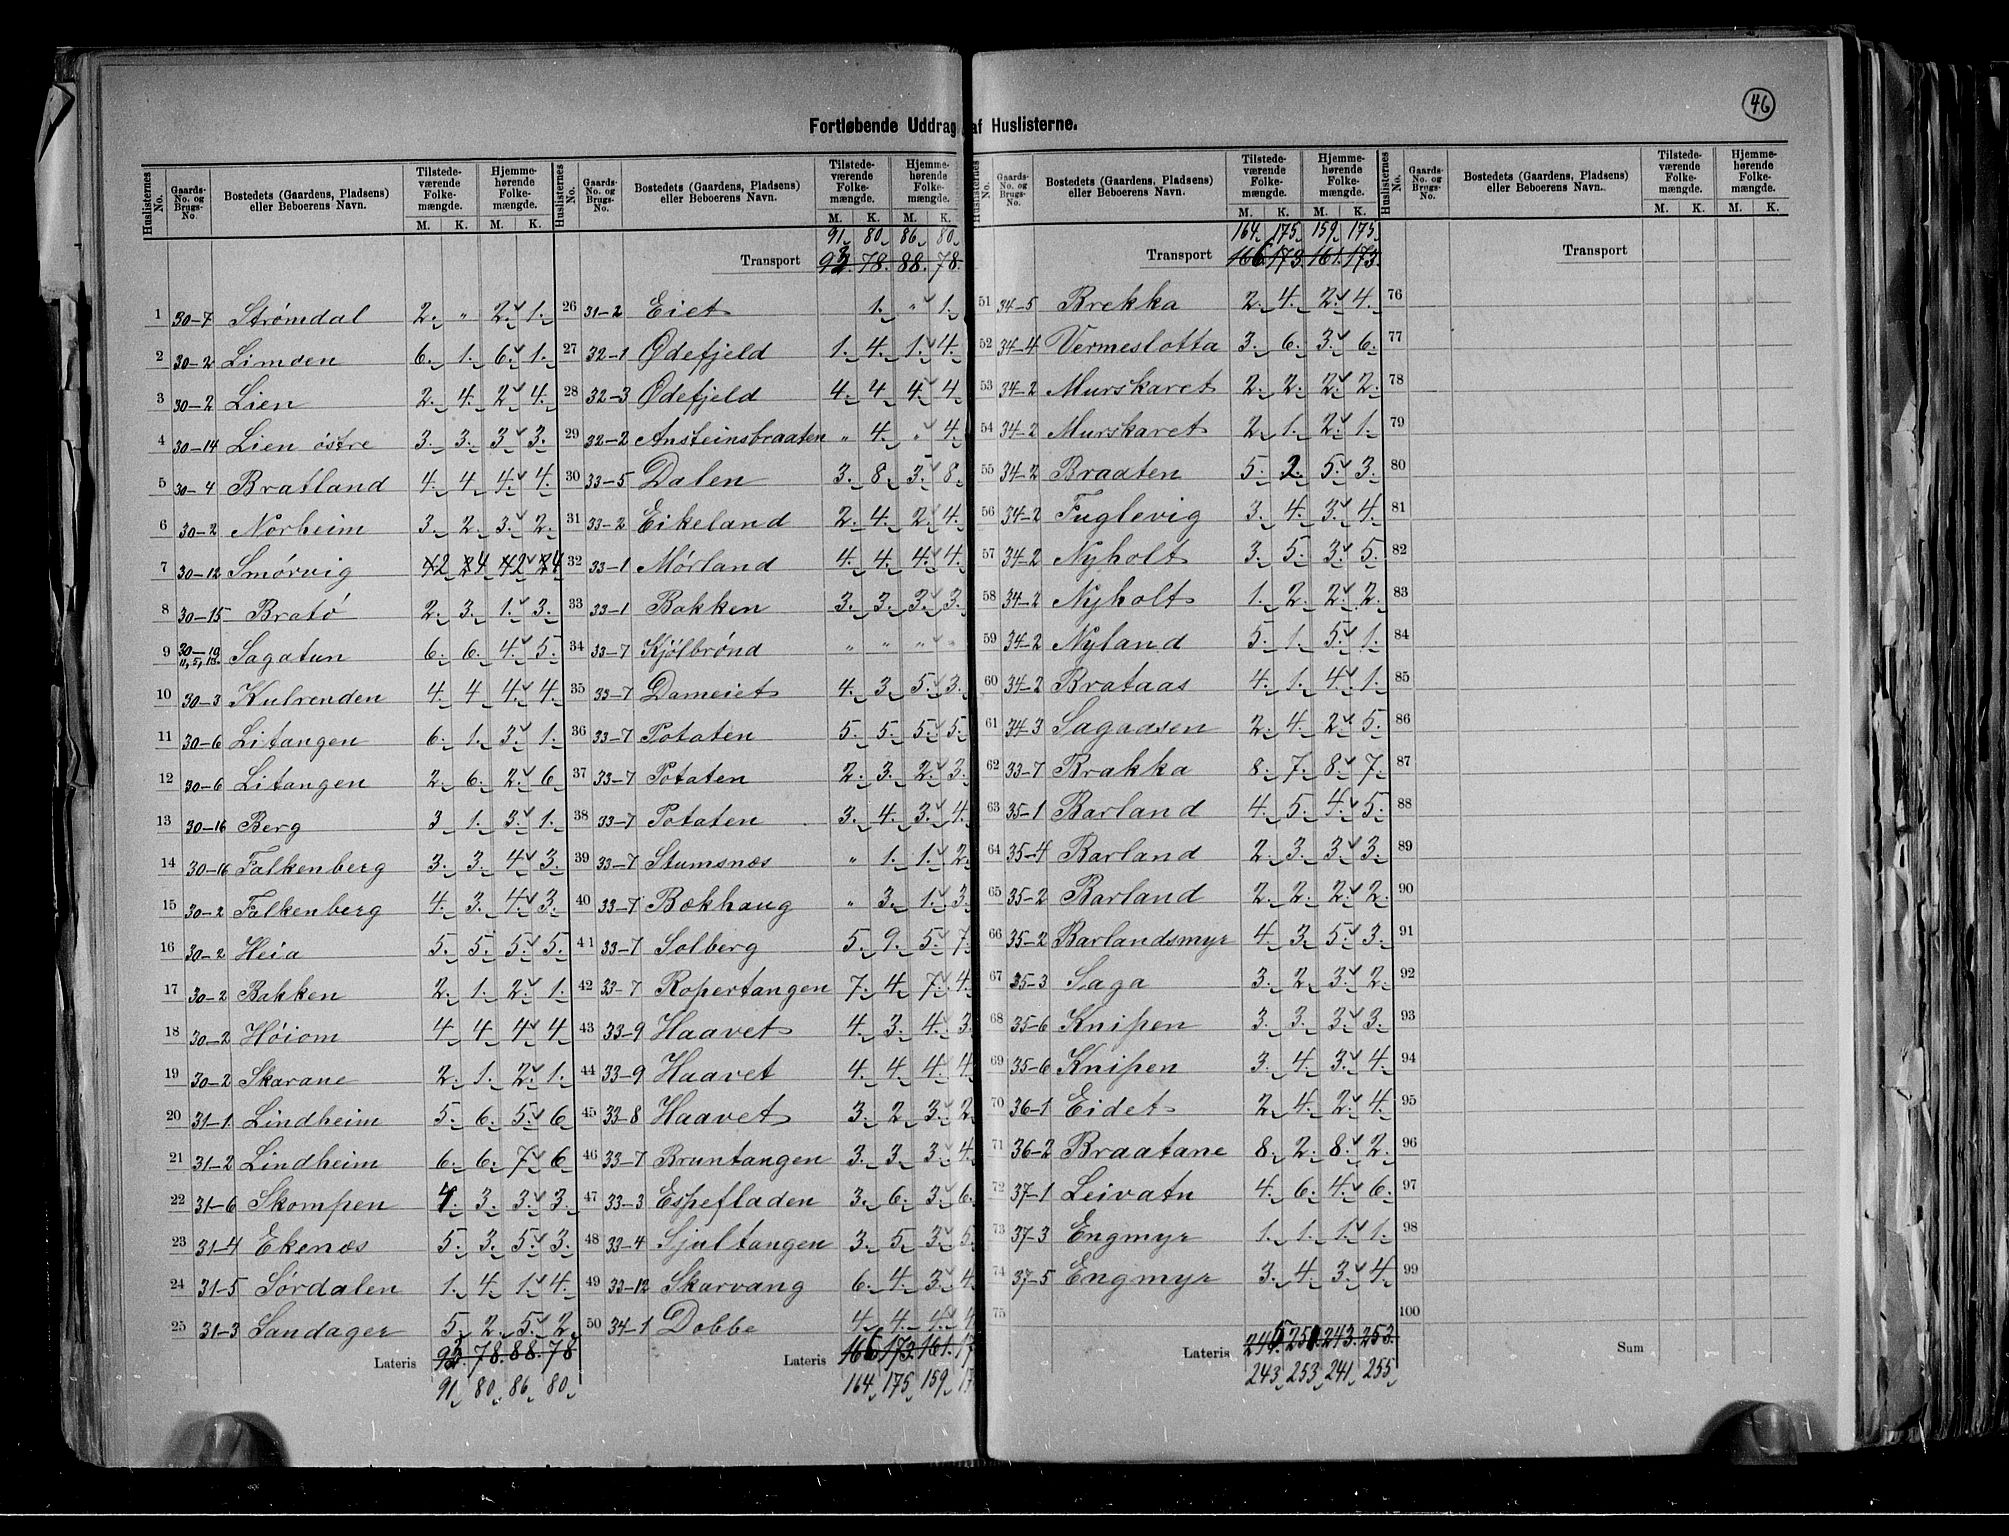 46
Fortløbende Uddrag af Huslisterne.
Huslisternes No. Gaards-No. og Brugs-No. Bostedets (Gaardens, Pladsens) eller Beboerens Navn. Tilstedeværende Folkemængde. M. K. Hjemmehørende Folkemængde. M. K.
1 30-7 Strømdal 2. " 2. 1.
2 30-2 Limoen 6. 1. 6. 1.
3 30-2 Lien 2. 4. 2. 4.
4 30-14 Lien østre 3. 3. 3. 3.
5 30-4 Bratland 4. 4. 4. 4.
6 30-2 Norheim 3. 2. 3. 2.
7 30-12 Smørvig 2 4 2 4
8 30-15 Bratø 2. 3. 1. 3.
9 30-10 11, 5, 13. Sagatun 6. 6. 4. 5.
10 30-3 Kulrenden 4. 4 4. 4.
11 30-6 Litangen 6. 1. 3. 1.
12 30-6 Litangen 2. 6. 2. 6
13 30-16 Berg 3 1. 3. 1.
14 30-16 Falkenberg 3. 3. 4. 3.
15 30-2 Falkenberg 4. 3. 4. 3.
16 30-2 Heia 5. 5. 5. 5.
17 30-2 Bakken 2. 1. 2. 1.
18 30-2 Høiom 4 4 4 4
19 30-2 Skarane 2. 1. 2. 1.
20 31-1 Lindheim 5. 6. 5. 6
21 31-2 Lindheim 6. 6. 7. 6
22 31-6 Skompen 4. 3. 3. 3.
23 31-4 Ekenæs 5. 3. 5. 3.
24 31-5 Sørdalen 1. 4. 1. 4.
25 31-3 Sandager 5. 2. 5. 2.
Lateris 93. 78. 88. 78
91 80 86 80
Huslisternes No. Gaards-No. og Brugs-No. Bostedets (Gaardens, Pladsens) eller Beboerens Navn. Tilstedeværende Folkemængde. M. K. Hjemmehørende Folkemængde. M. K.
91 80 86 80
Transport 93. 78. 88. 78.
26 31-2 Eiet 1. " 1.
27 32-1 Ødefjeld 1. 4. 1. 4.
28 32-3 Ødefjeld 4. 4 4. 4
29 32-2 Ansteinsbraaten " 4. " 4.
30 33-5 Dalen 3. 8. 3. 8
31 33-2 Eikeland 2. 4. 2. 4.
32 33-1 Mørland 4. 4. 4. 4.
33 33-1 Bakken 3. 3. 3. 3.
34 33-7 Kjølbrønd " " " "
35 33-7 Dameiet 4. 3. 5. 3.
36 33-7 Potaten 5. 5. 5. 5.
37 33-7 Potaten 2. 3. 2. 3.
38 33-7 Potaten 3. 4. 3. 4.
39 33-7 Stumsnæs " 1. 1. 2.
40 33-7 Bækhaug " 3. 1. 3.
41 33-7 Solberg 5. 9. 5. 7.
42 33-7 Ropertangen 7. 4. 7. 4.
43 33-9 Haavet 4. 3. 4. 3
44 33-9 Haavet 4. 4. 4. 4
45 33-8 Haavet 3. 2 3. 2
46 33-7 Bruntangen 3. 3. 3. 4.
47 33-3 Espefladen 3. 6. 3. 6.
48 33-4 Sjultangen 3. 5. 3. 5
49 33-12 Skarvang 6. 4. 3. 4
50 34-1 Dobbe 4. 4. 4. 4
Lateris 166 173. 161. 17
164 175 159 17
Huslisternes No. Gaards-No. og Brugs-No. Bostedets (Gaardens, Pladsens) eller Beboerens Navn. Tilstedeværende Folkemængde. M. K. Hjemmehørende Folkemængde. M. K.
164 175 159 175
Transport 166. 173. 161. 173.
51 34-5 Brekka 2. 4. 2. 4.
52 34-4 Vermeslotta 3. 6. 3. 6.
53 34-2 Murskaret 2. 2. 2. 2.
54 34-2 Murskaret 2. 1. 2. 1.
55 34-2 Braaten 5. 2. 5. 3.
56 34-2 Fuglevig 3. 4. 3. 4.
57 34-2 Nyholt 3. 5. 3. 5.
58 34-2 Nyholt 1. 2. 2. 2.
59 34-2 Nyland 5. 1. 5. 1.
60 34-2 Brataas 4. 1. 4. 1.
61 34-3 Sagaasen 2. 4. 2. 5.
62 33-7 Brakka 8. 7. 8. 7.
63 35-1 Barland 4. 5. 4. 5.
64 35-4 Barland 2. 3. 3. 3.
65 35-2 Barland 2. 2. 2. 2.
66 35-2 Barlandsmyr 4. 3. 5. 3.
67 35-3 Saga 3. 2. 3. 2.
68 35-6 Knipen 3. 3. 3. 3.
69 35-6 Knipen 3. 4. 3. 4.
70 36-1 Eidet 2. 4. 2. 4.
71 36-2 Braatane 8. 2. 8. 2.
72 37-1 Leivatn 4. 6. 4. 6.
73 37-3 Engmyr 1. 1. 1. 1.
74 37-5 Engmyr 3. 4. 3. 4.
75
Lateris 245. 251. 243. 253.
243 253 241 255
Huslisternes No. Gaards-No. og Brugs-No. Bostedets (Gaardens, Pladsens) eller Beboerens Navn. Tilstedeværende Folkemængde. M. K. Hjemmehørende Folkemængde. M. K.
Transport
76
77
78
79
80
81
82
83
84
85
86
87
88
89
90
91
92
93
94
95
96
97
98
99
100
Sum